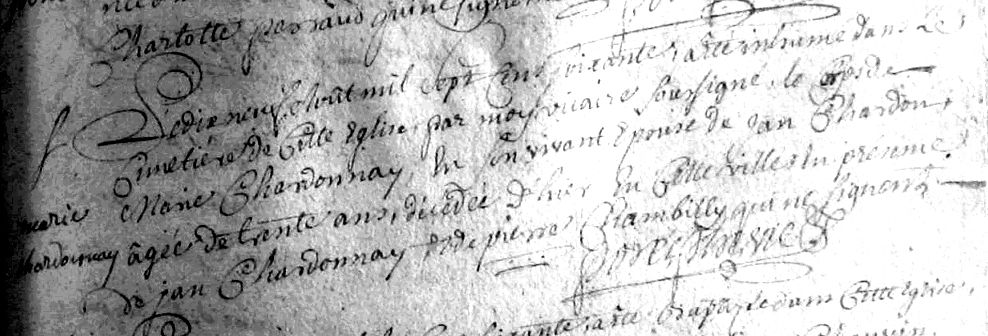 Charlotte perraud qui ne signe
Le dix neuf d'Aout mil sept Cens soixante a été inhumé dans Le
Cimetière de Cette Eglise, par moy vicaire soussigné, le Corps de
marie Marie Chardonnay, En son vivant Epouse de Jan Chardon,
chardonnay âgée de trente ans, décédée d'hier En Cette ville En présence
de jan Chardonnay, & de pierre Chambilly qui ne signent
soixante a été Baptisé dans Cette Eglise,